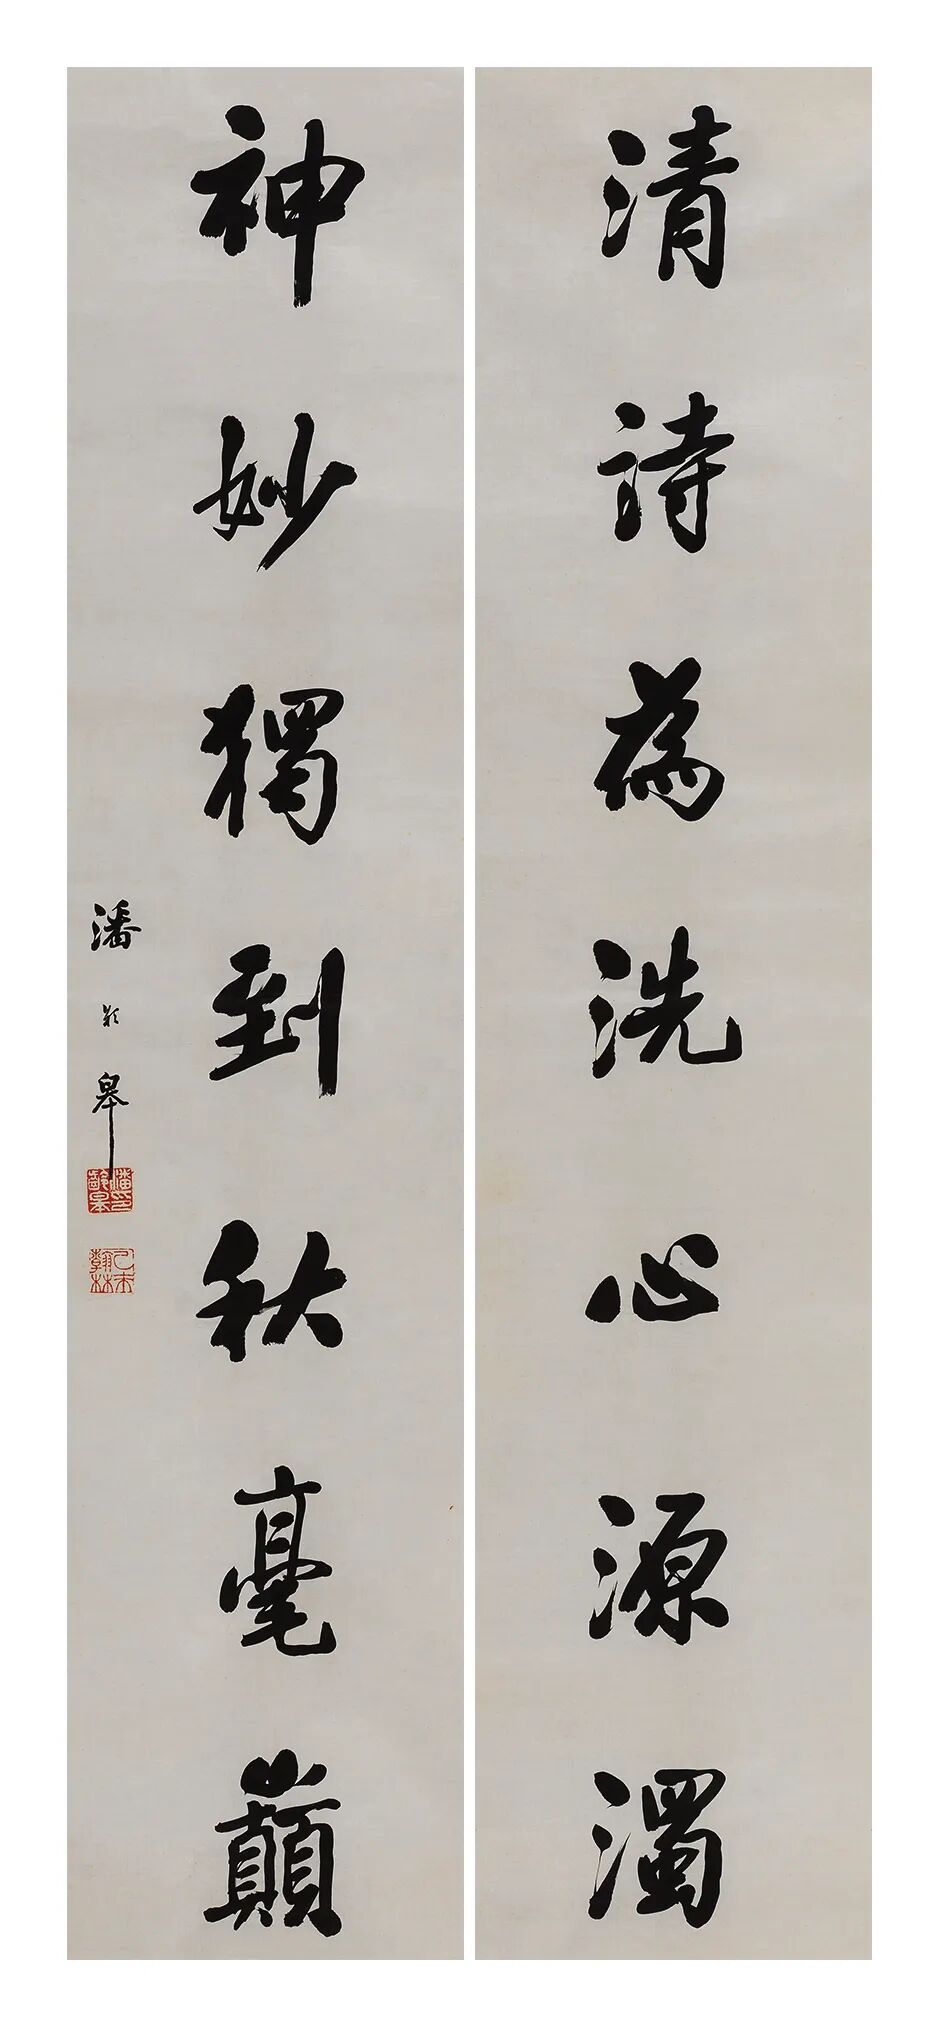 清詩為洗心源濁
神妙獨到秋毫巔
潘齡皋
潘印齡皋
乙未翰林